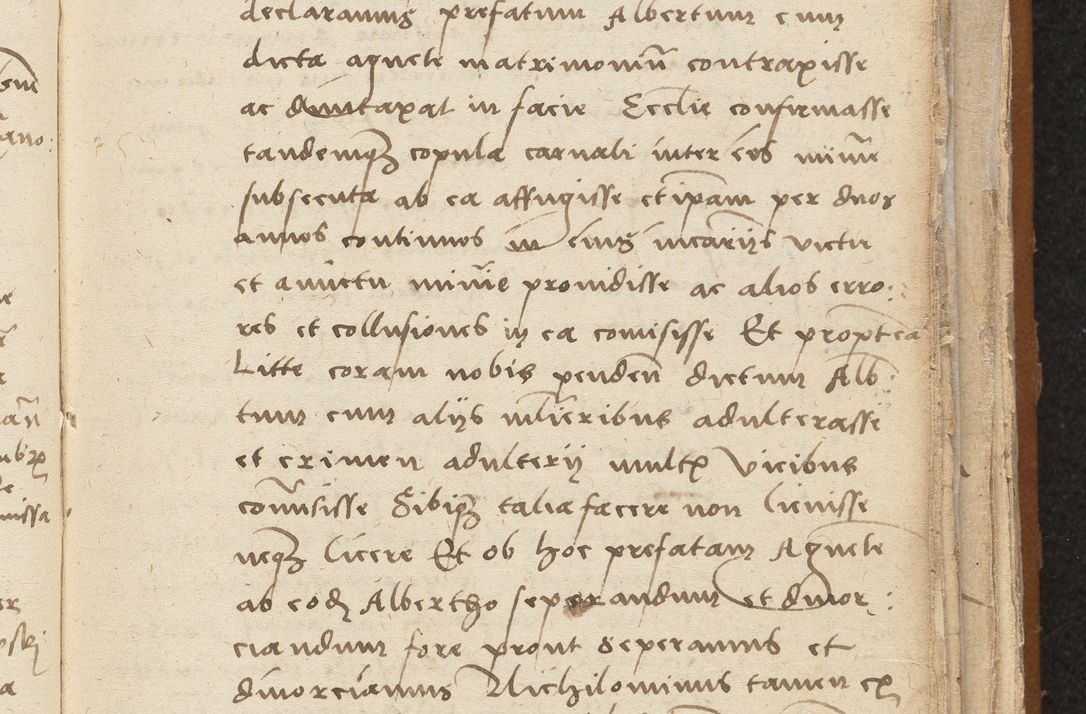 declaramus prefatum Albertum cum
dicta agnete matrimoniũ contraxisse
ac duntaxat in facie Ecclie confirmasse
tandemqз copula carnali inter eos minĩe
subsecuta ab ea affugisse et ipam per duos
annos continuos in eius victu
et amictu minĩe providisse ac alios erro:
res et collusiones in ea comisisse Et propterea
Litte coram nobis pendeñ dictum Alb:
tum cum alijs mlieribus adulterasse
et crimen adulterij multx vicibus
comisisse Sibiqз talia facere non licuisse
neqз licere Et ob hoc prefatam Agnete
ab eod Albertho seperandum et divor:
ciandum fore prout seperamus et
divorciamus Nichilominus tamen ex
ano:
missa